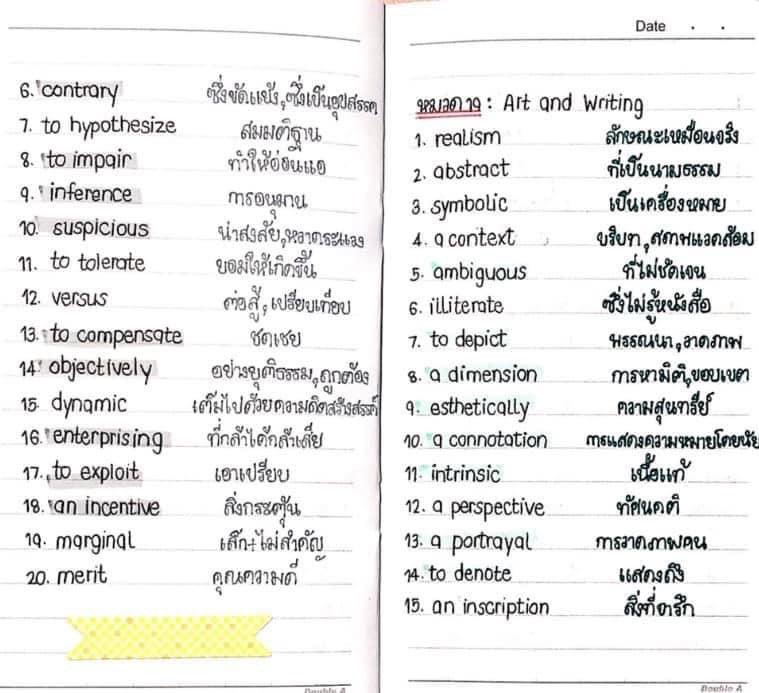 6. contrary ซึ่งขัดแย้ง, ซึ่งเป็นอุปสรรค
7. to hypothesize สมมติฐาน
8. to impair ทำให้อ่อนแอ
9. inference การอนุมาน
10. suspicious น่าสงสัย, หวาดระแวง
11. to tolerate ยอมให้เกิดขึ้น
12. versus ต่อสู้, เปรียบเทียบ
13. to compensate ชดเชย
14. objectively อย่างยุติธรรม, ถูกต้อง
15. dynamic เต็มไปด้วยความคิดสร้างสรรค์
16. enterprising ที่กล้าได้กล้าเสีย
17. to exploit เอาเปรียบ
18. an incentive สิ่งกระตุ้น
19. marginal เล็ก+ไม่สำคัญ
20. merit คุณความดี
Double A
Date . .
หมวด 19 : Art and Writing
1. realism ลักษณะเหมือนจริง
2. abstract ที่เป็นนามธรรม
3. symbolic เป็นเครื่องหมาย
4. a context บริบท, สภาพแวดล้อม
5. ambiguous ที่ไม่ชัดเจน
6. illiterate ซึ่งไม่รู้หนังสือ
7. to depict พรรณนา, วาดภาพ
8. a dimension การหามิติ, ขอบเขต
9. esthetically ความสุนทรีย์
10. a connotation การแสดงความหมายโดยนัย
11. intrinsic เนื้อแท้
12. a perspective ทัศนคติ
13. a portrayal การวาดภาพคน
14. to denote แสดงถึง
15. an inscription สิ่งที่จารึก
Double A